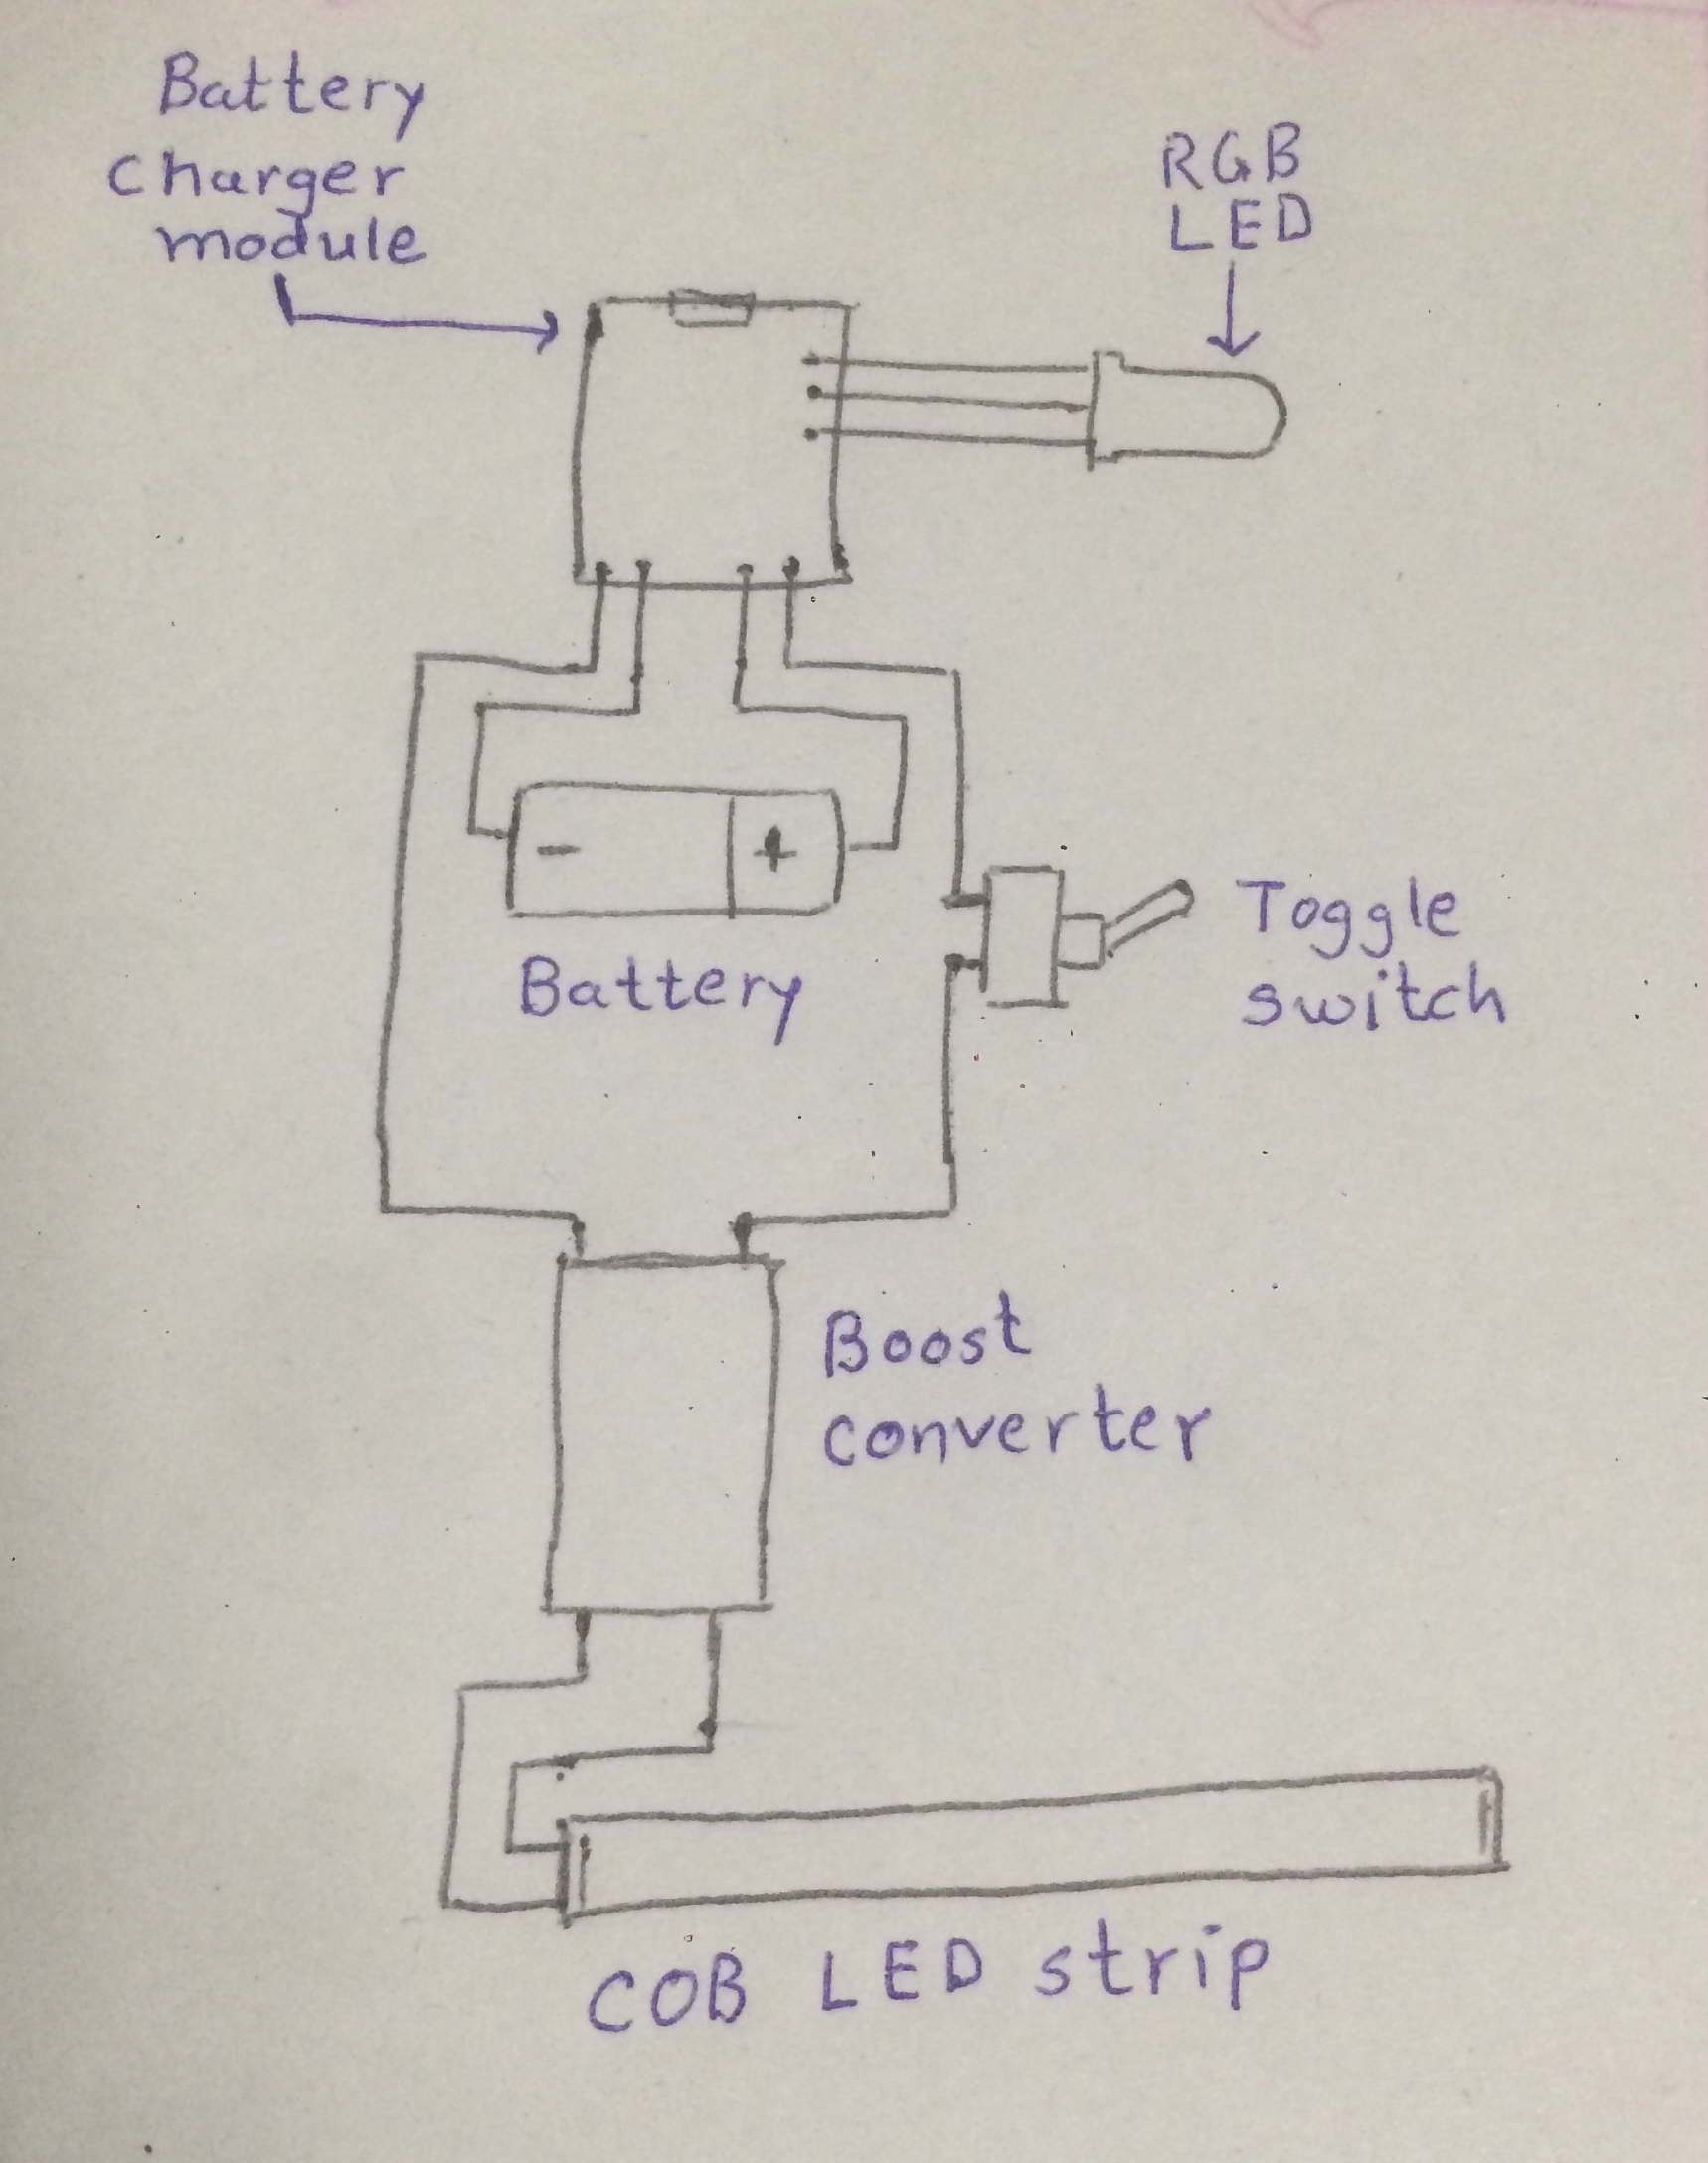 Battery
charger
module
RGB
LED
-
+
Battery
Toggle
switch
Boost
converter
COB LED strip